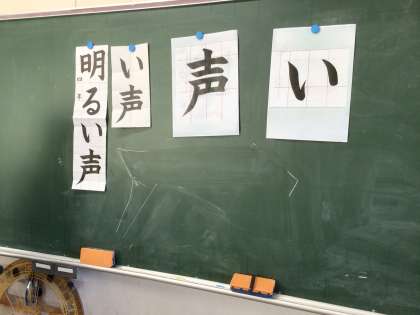 明るい声
四年
い声
声
い